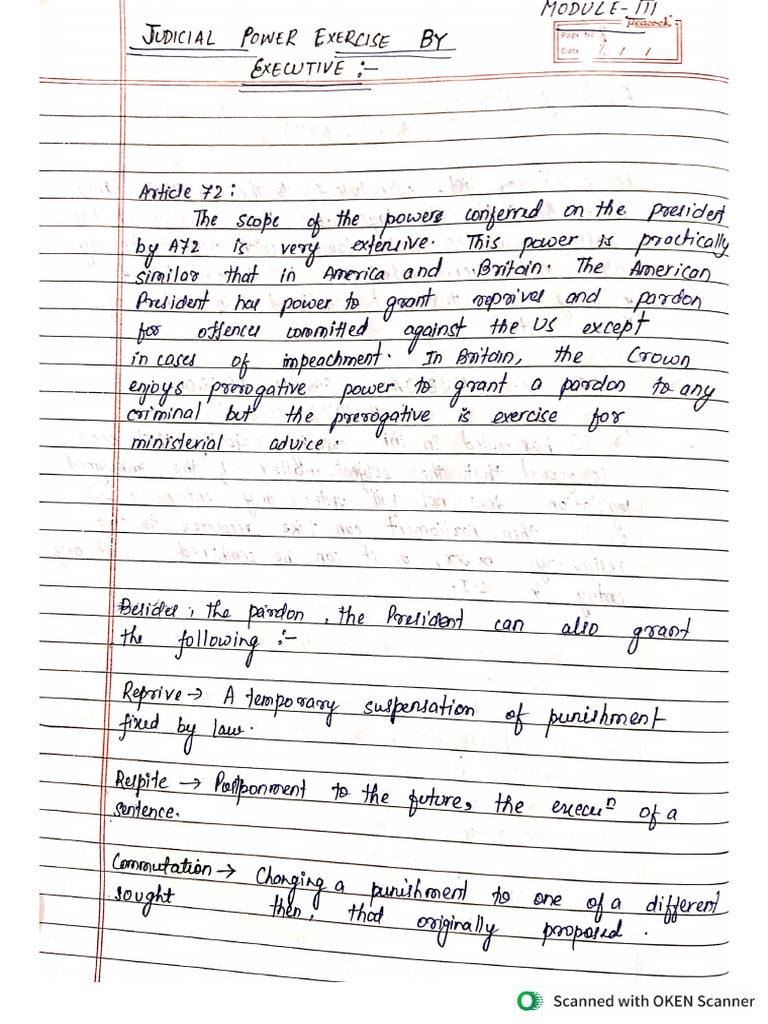 MODULE-III
Peacock
Page No.
Date / /
JUDICIAL POWER EXERCISE BY
EXECUTIVE :-
Article 72 :
The scope of the powers conferred on the president
by A72 is very extensive. This power is practically
similar that in America and Britain. The American
President has power to grant reprives and pardon
for offences committed against the US except
in cases of impeachment. In Britain, the Crown
enjoys prerogative power to grant a pardon to any
criminal but the prerogative is exercise for
ministerial advice.
Besides, the pardon, the President can also grant
the following :-
Reprive → A temporary suspensation of punishment
fixed by law.
Respite → Postponment to the future, the execuⁿ of a
sentence.
Commutation → Changing a punishment to one of a different
sought then, that originally proposed.
Scanned with OKEN Scanner